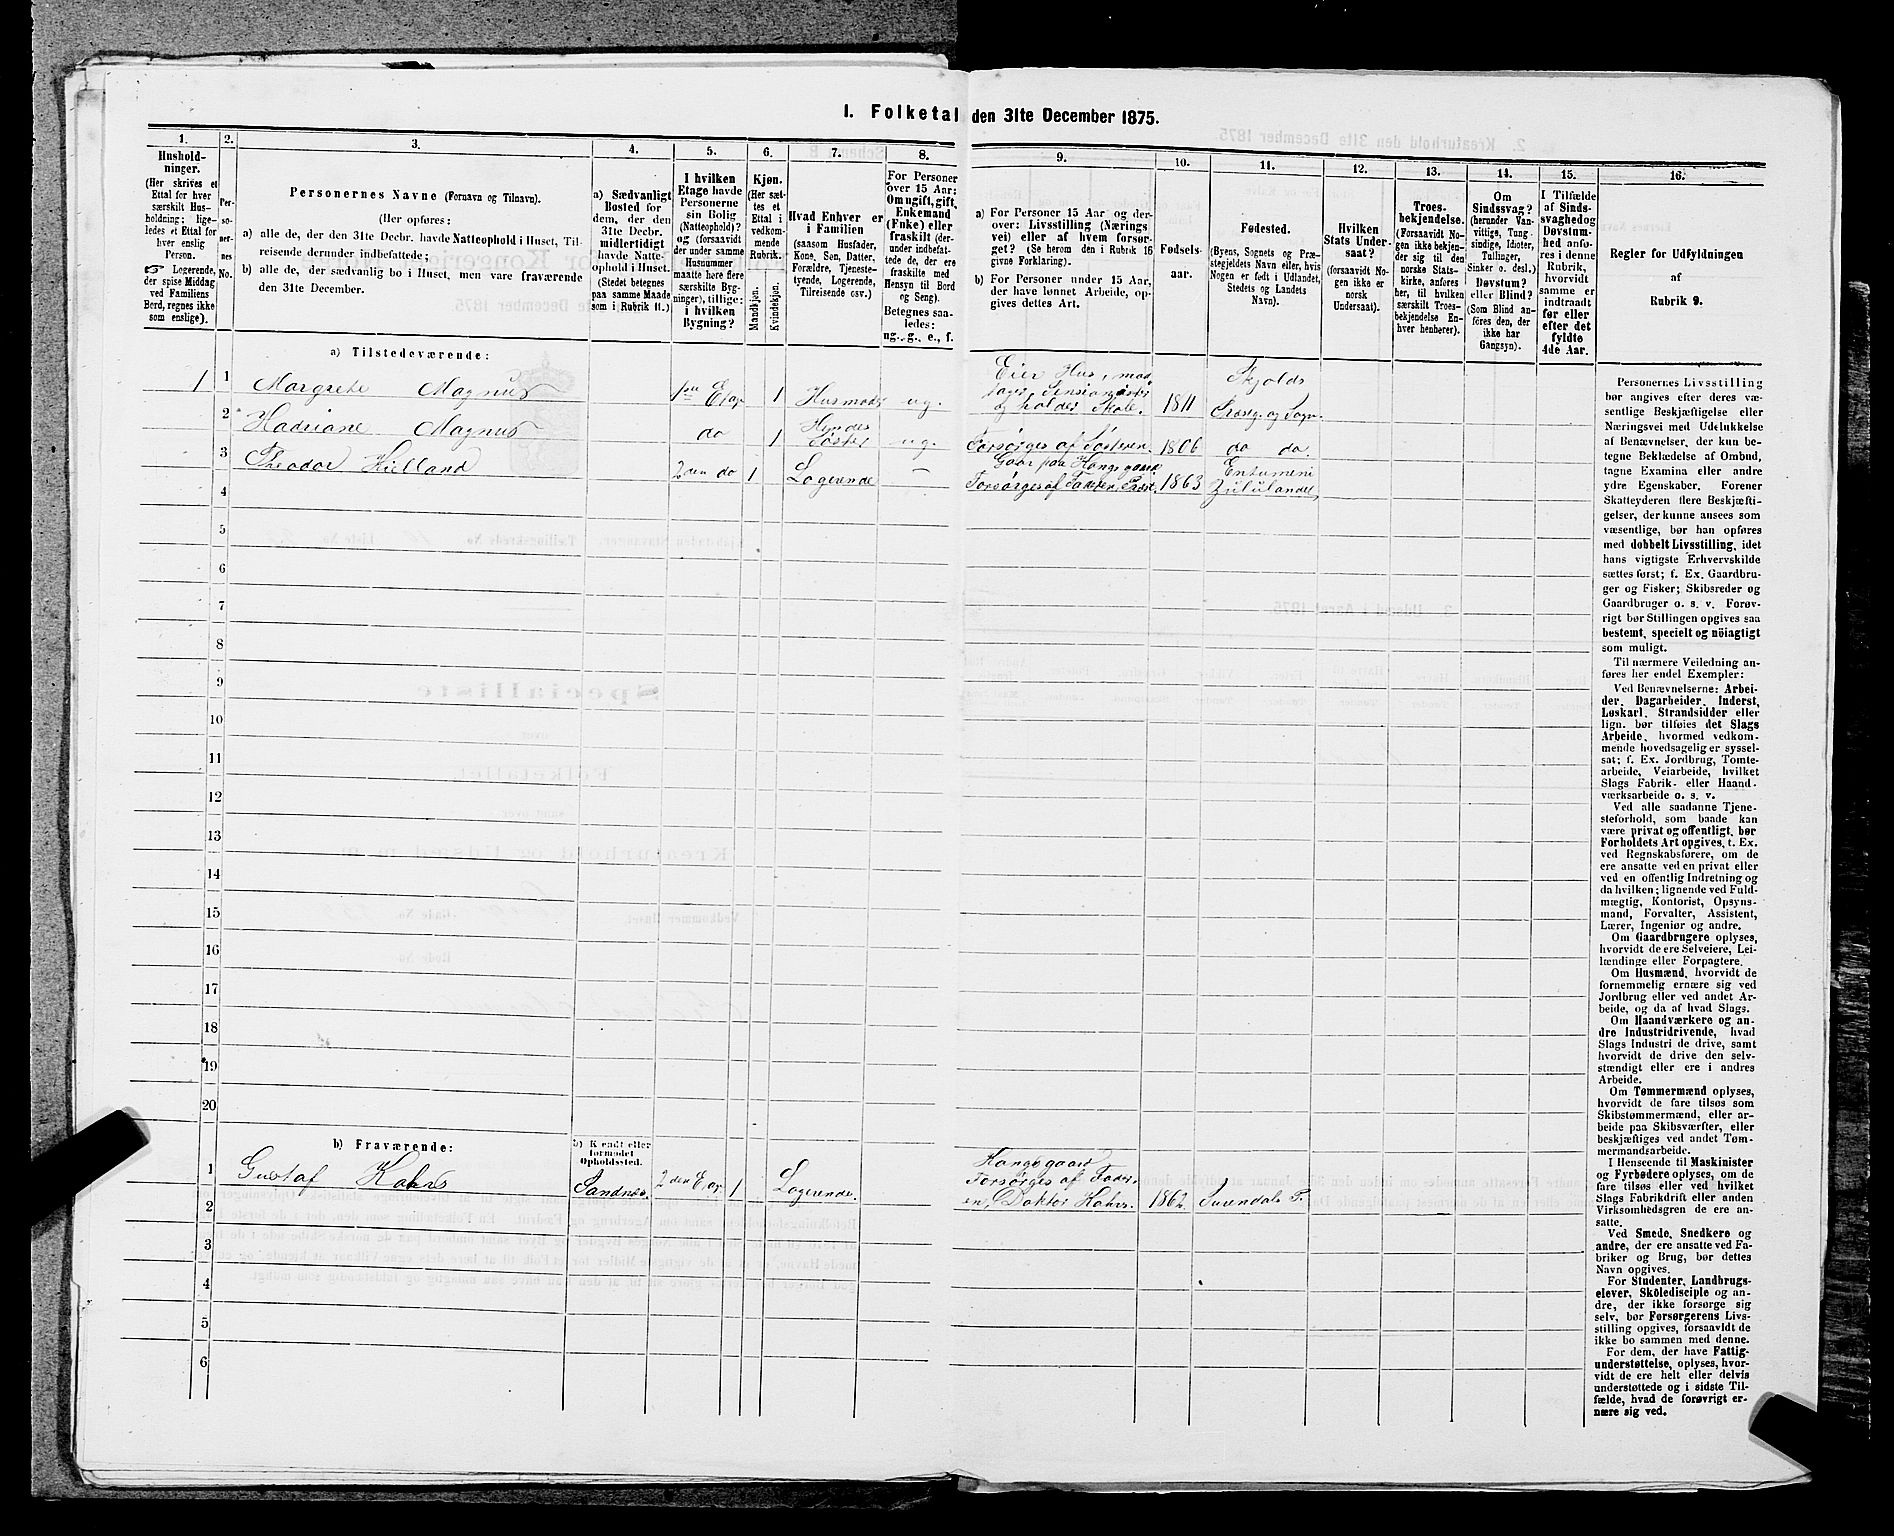 I. Folketal den 31te December 1875.
1.
Hushold-
ninger.
(Her skrives et
Ettal for hver
særskilt Hus-
holdning; lige-
ledes et Ettal for
hver enslig
Person.
☞ Logerende,
der spise Middag
ved Familiens
Bord, regnes ikke
som enslige).
2.
Per-
so-
ner-
nes
No.
3.
Personernes Navne (Fornavn og Tilnavn).
(Her opføres:
a) alle de, der den 31te Decbr. havde Natteophold i Huset, Til-
reisende derunder indbefattede;
b) alle de, der sædvanlig bo i Huset, men vare fraværende
den 31te December.
4.
a) Sædvanligt
Bosted for
dem, der den
31te Decbr.
midlertidigt
havde Natte-
ophold i Huset.
(Stedet betegnes
paa samme Maade
som i Rubrik 11.)
5.
I hvilken
Etage havde
Personerne
sin Bolig
(Natteophold)?
og (forsaavidt
der under samme
Husnummer
maatte høre flere
særskilte Byg-
ninger), tillige:
i hvilken
Bygning?
6.
Kjøn.
(Her sæt-
tes et
Ettal i
vedkom-
mende
Rubrik.
Mandkjøn.
Kvindekjøn.
7.
Hvad Enhver er
i Familien
(saasom Husfader,
Kone, Søn, Datter,
Forældre, Tjeneste-
tyende, Logerende,
Tilreisende osv.)
8.
For Personer
over 15 Aar:
Om ugift, gift,
Enkemand
(Enke) eller
fraskilt (der-
under indbefat-
tede de, der ere
fraskilte med
Hensyn til Bord
og Seng).
Betegnes saa-
ledes:
ug., g., e., f.
9.
a) For Personer 15 Aar og der-
over: Livsstilling (Nærings
vei) eller af hvem forsør-
get? (Se herom den i Rubrik 16
givne Forklaring).
b) For Personer under 15 Aar,
der have lønnet Arbeide, op-
gives dettes Art.
10.
Fødsels-
aar.
11.
Fødested.
(Byens, Sognets og Præ-
stegjeldets Navn eller, hvis
Nogen er født i Udlandet,
Stedets og Landets
Navn).
12.
Hvilken
Stats Under-
saat?
(forsaavidt No-
gen ikke er
norsk
Undersaat).
13.
Troes-
bekjendelse.
(Forsaavidt No-
gen ikke bekjen-
der sig til den
norske Stats-
kirke, anføres
her, til hvilken
særskilt Troes-
bekjendelse En-
hver henhører).
14.
Om
Sindssvag?
(herunder Van-
vittige, Tung-
sindige, Idioter,
Tullinger,
Sinker o. desl.)
Døvstum?
eller Blind?
(Som Blind an-
føres den, der
ikke har
Gangsyn).
15.
I Tilfælde
af Sinds-
svaghed og
Døvstum-
hed anfø-
res i denne
Rubrik,
hvorvidt
samme er
indtraadt
før eller
efter det
fyldte
4de Aar.
16.
Regler for Udfyldningen
af
Rubrik 9.
a) Tilstedeværende:
1 1 Margrete Magnus 1ste Etag 1 Husmods ug. Eier Hus, mod-
tager Pension
og holder Skole. 1811 Skjolds
Præstg. og Sogn.
2 Hadriane Magnus do 1 Hendes
Søster ug. Forsørges af Søsteren. 1806 do do
3 Theodor Kielland 2den do 1 Logerende — Gaar paa Kongsgaard
Forsørges af Faderen, Præst. 1863 Entumeni
Zululandet
4
5
6
7
8
9
10
11
12
13
14
15
16
17
18
19
20
b) Fraværende:
b) Kjendt eller
formodet
Opholdssted.
1 Gustaf Hahns Sandnæs. 2den Etag. 1 Logerende. Kongsgaard
Forsørges af Fader-
en, Doktor Hahns. 1862. Surendals P.
2
3
4
5
6
Personernes Livsstilling
bør angives efter deres væ-
sentlige Beskjæftigelse eller
Næringsvei med Udelukkelse
af Benævnelser, der kun be-
tegne Beklædelse af Ombud,
tagne Examina eller andre
ydre Egenskaber. Forener
Skatteyderen flere Beskjæfti-
gelser, der kunne ansees som
væsentlige, bør han opføres
med dobbelt Livsstilling, idet
hans vigtigste Erhvervskilde
sættes først; f. Ex. Gaardbru-
ger og Fisker; Skibsreder og
Gaardbruger o. s. v. Forøv-
rigt bør Stillingen opgives saa
bestemt, specielt og nöiagtigt
som muligt.
Til nærmere Veiledning an-
føres her endel Exempler:
Ved Benævnelserne: Arbei-
der, Dagarbeider, Inderst,
Løskarl, Strandsidder eller
lign. bør tilføies det Slags
Arbeide, hvormed vedkom-
mende hovedsagelig er syssel-
sat; f. Ex. Jordbrug, Tomte-
arbeide, Veiarbeide, hvilket
Slags Fabrik- eller Haand-
værksarbeide o. s. v.
Ved alle saadanne Tjene-
steforhold, som baade kan
være privat og offentligt, bør
Forholdets Art opgives, t. Ex.
ved Regnskabsførere, om de
ere ansatte ved en privat eller
ved en offentlig Indretning og
da hvilken; lignende ved Fuld-
mægtig, Kontorist, Opsyns-
mand, Forvalter, Assistent,
Lærer, Ingeniør og andre.
Om Gaardbrugere oplyses,
hvorvidt de ere Selveiere, Lei-
lændinge eller Forpagtere.
Om Husmænd, hvorvidt de
fornemmelig ernære sig ved
Jordbrug eller ved andet Ar-
beide, og da af hvad Slags.
Om Haandværkere og an-
dre Industridrivende, hvad
Slags Industri de drive, samt
hvorvidt de drive den selv-
stændigt eller ere i andres
Arbeide.
Om Tømmermænd oplyses,
hvorvidt de fare tilsøs som
Skibstømmermænd, eller ar-
beide paa Skibsværfter, eller
beskjæftiges ved andet Tøm-
mermandsarbeide.
I Henseende til Maskinister
og Fyrbødere oplyses, om de
fare tilsøs eller ved hvilket
Slags Fabrikdrift eller anden
Virksomhedsgren de ere an-
satte.
Ved Smede, Snedkere og
andre, der ere ansatte ved Fa-
briker og Brug, bør dettes
Navn opgives.
For Studenter, Landbrugs-
elever, Skoledisciple og an-
dre, der ikke forsørge sig
selv, bør Forsørgerens Livs-
stilling opgives, forsaavidt de
ikke bo sammen med denne.
For dem, der have Fattig-
understøttelse, oplyses, hvor-
vidt de ere helt eller delvis
understøttede og i sidste Til-
fælde, hvad de forøvrigt er-
nære sig ved.